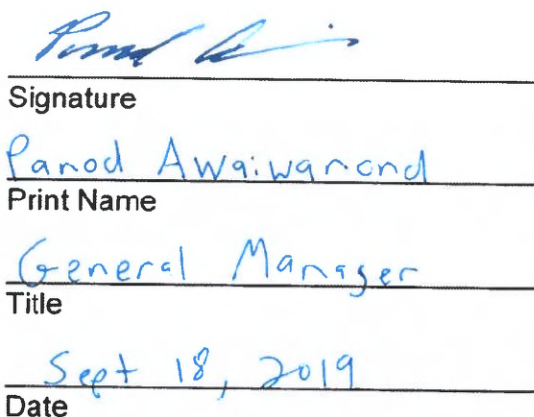 Signature
Panod Awaiwanond
Print Name
General Manager
Title
Sept 18, 2019
Date